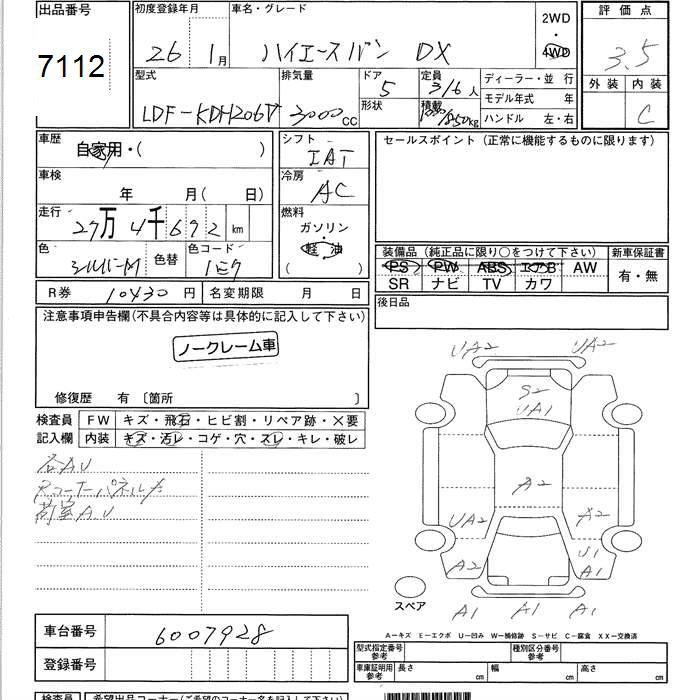 出品番号
7112
初度登録年月
26 1月
車名・グレード
ハイエースバン DX
2WD
・
4WD
評価点
3.5
外装 内装
C
型式
LDF-KDH206V
排気量
3000cc
ドア
5
形状
定員
3/6人
積載
kg
ディーラー・並 行
モデル年式 年
ハンドル 左・右
車歴
自家用・( )
車検
年 月( 日)
走行
27万4千692km
色
シルバーM
色替
色コード
1E7
シフト
IAT
冷房
AC
燃料
ガソリン
軽油
( )
セールスポイント(正常に機能するものに限ります)
装備品(純正品に限り○をつけて下さい)
PS PW ABS エアB AW
SR ナビ TV カワ
新車保証書
有・無
R券 10430円 名変期限 月 日
後日品
注意事項申告欄(不具合内容等は具体的に記入して下さい)
ノークレーム車
修復歴 有〔箇所 〕
検査員
記入欄
FW キズ・飛石・ヒビ割・リペア跡・✕要
内装 キズ・汚レ・コゲ・穴・スレ・キレ・破レ
各A.U
Rコーナーパネル
荷室A.U
UA2 UA2
S2
UA1
A2
UA2 A2
A2 U1
A1
A1 A1
スペア
A-キズ E-エクボ U-凹み W-補修跡 S-サビ C-腐食 XX-交換済
車台番号 6007928
登録番号
型式指定番号
参考
種別区分番号
参考
車庫証明用
参考
長さ cm 幅 cm 高さ cm
検査員
希望出品コーナー(ご希望のコーナー名を記入して下さい)